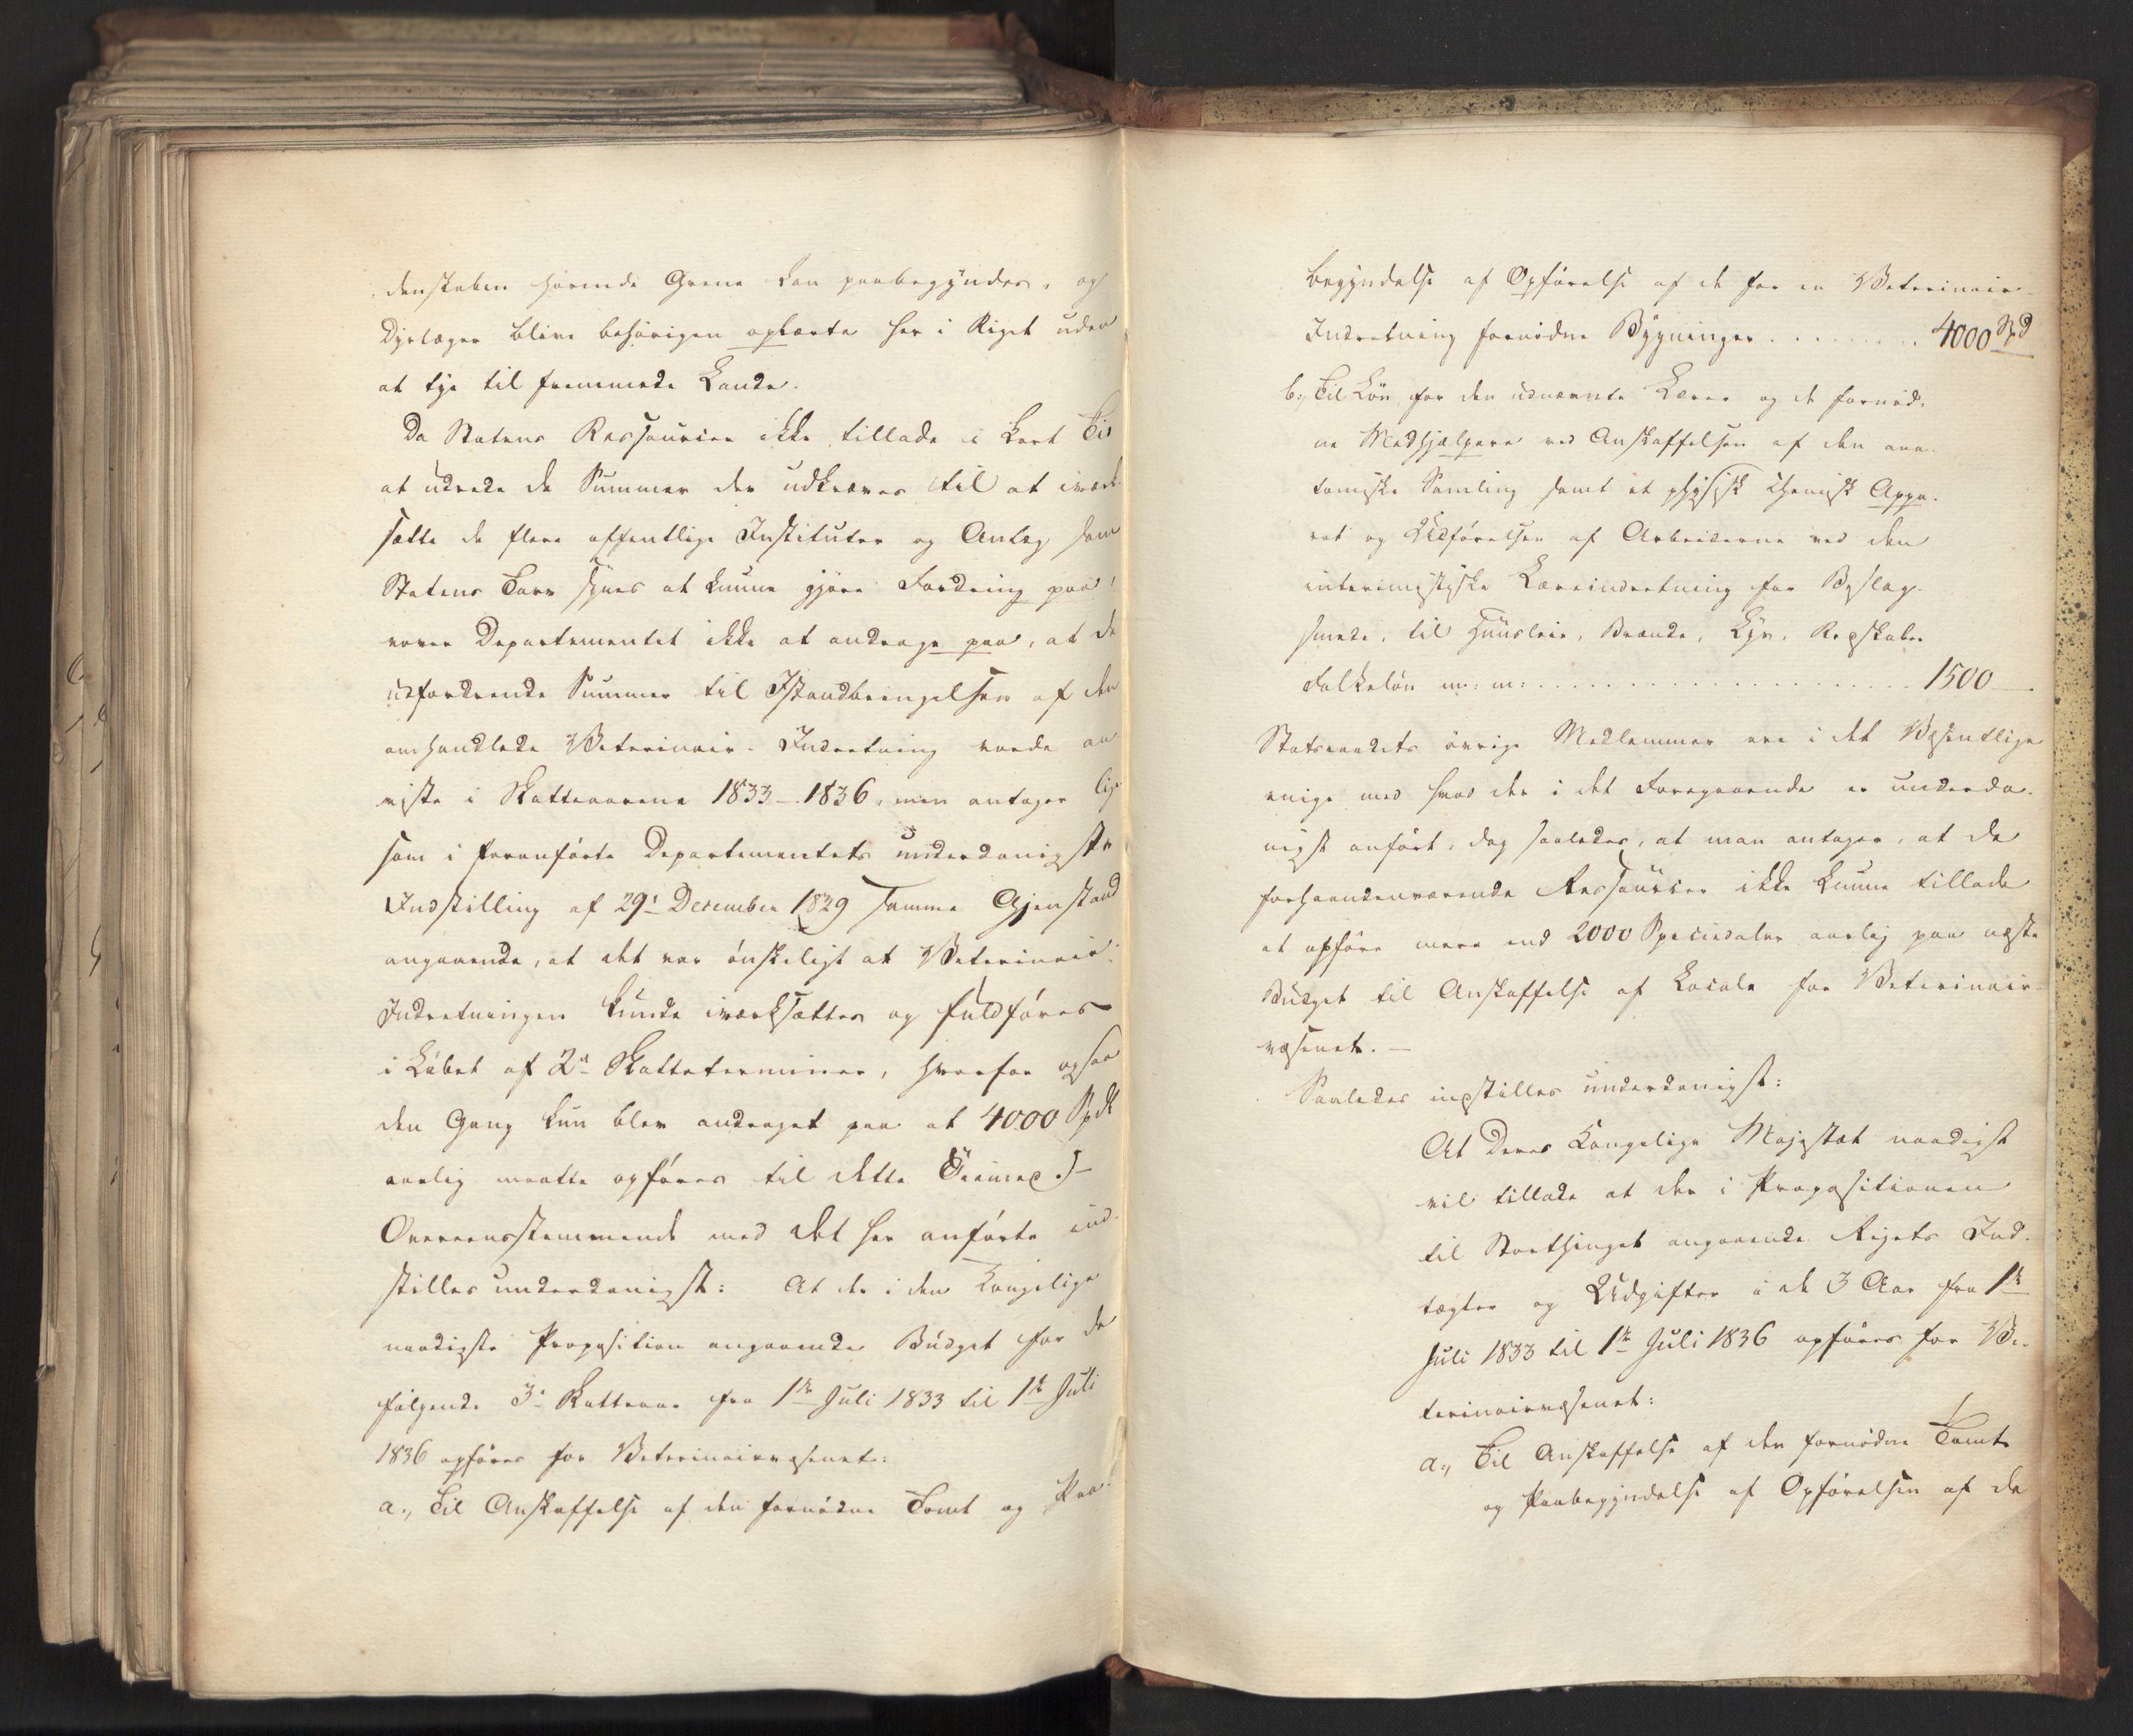 denskaben hørende Grene kan paabegyndes, og
Dyrlæger blive behørigen oplærte her i Riget uden
at tye til fremmede Lande.
Da Statens Ressourcer ikke tillade i kort Tid
at udrede de Summer der udkræves til at iværk
sætte de flere offentlige Instituter og Anlæg som
Statens Tarv synes at kunne gjøre Fordring paa,
vover Departementet ikke at andrage paa, at de
udfordrende Summer til Istandbringelsen af den
omhandlede Veterinair-Indretning vorde an
viste i Skatteaarene 1833-1836, men antager lige
som i foranførte Departementets underdanigste
Indstilling af 29de December 1829 samme Gjenstand
angaaende, at det var ønskeligt at Veterinair-
Indretningen kunde iværksættes og fuldføres
i Løbet af 2de Skatteterminer, hvorfor ogsaa
den Gang kun blev andraget paa at 4000 Spdl
aarlig maatte opføres til dette Øiemed.-
Overeensstemmende med det her anførte ind-
stilles underdanigst: At der i den Kongelige
naadigste Proposition angaaende Budget for de
følgende 3de Skatteaar fra 1ste Juli 1833 til 1ste Juli
1836 opføres for Veterinairvæsenet:
a., Til Anskaffelse af den fornødne Tomt og Paa-
begyndelse af Opførelse af de for en Veterinair-
Indretning fornødne Bygninger . . . . . . . . 4000 Spd
b., Til Løn for den udnævnte Lærer og de fornød-
ne Medhjælpere ved Anskaffelsen af den ana-
tomiske Samling samt et physisk chemisk Appa-
rat og Udførelsen af Arbeiderne ved den
interimistiske Læreindretning for Beslag-
smede, til Huusleie, Brænde, Lys, Redskaber
Folkeløn m: m: . . . . . . . . . . . . . . . . 1500 —.
Statsraadets øvrige Medlemmer ere i det Væsentlige
enige med hvad der i det Foregaaende er underda-
nigst anført, dog saaledes, at man antager, at de
forhaandenværende Ressourcer ikke kunne tillade
at opføre mere end 2000 Speciedaler aarlig paa næste
Budget til Anskaffelse af Locale for Veterinair-
væsenet. —
Saaledes indstilles underdanigst:
At Deres Kongelige Majestæt naadigst
vil tillade at der i Propositionen
til Storthinget angaaende Rigets Ind-
tægter og Udgifter i de 3 Aar fra 1ste
Juli 1833 til 1ste Juli 1836 opføres for Ve-
terinairvæsenet:
a., Til Anskaffelse af den fornødne Tomt
og Paabegyndelse af Opførelsen af de